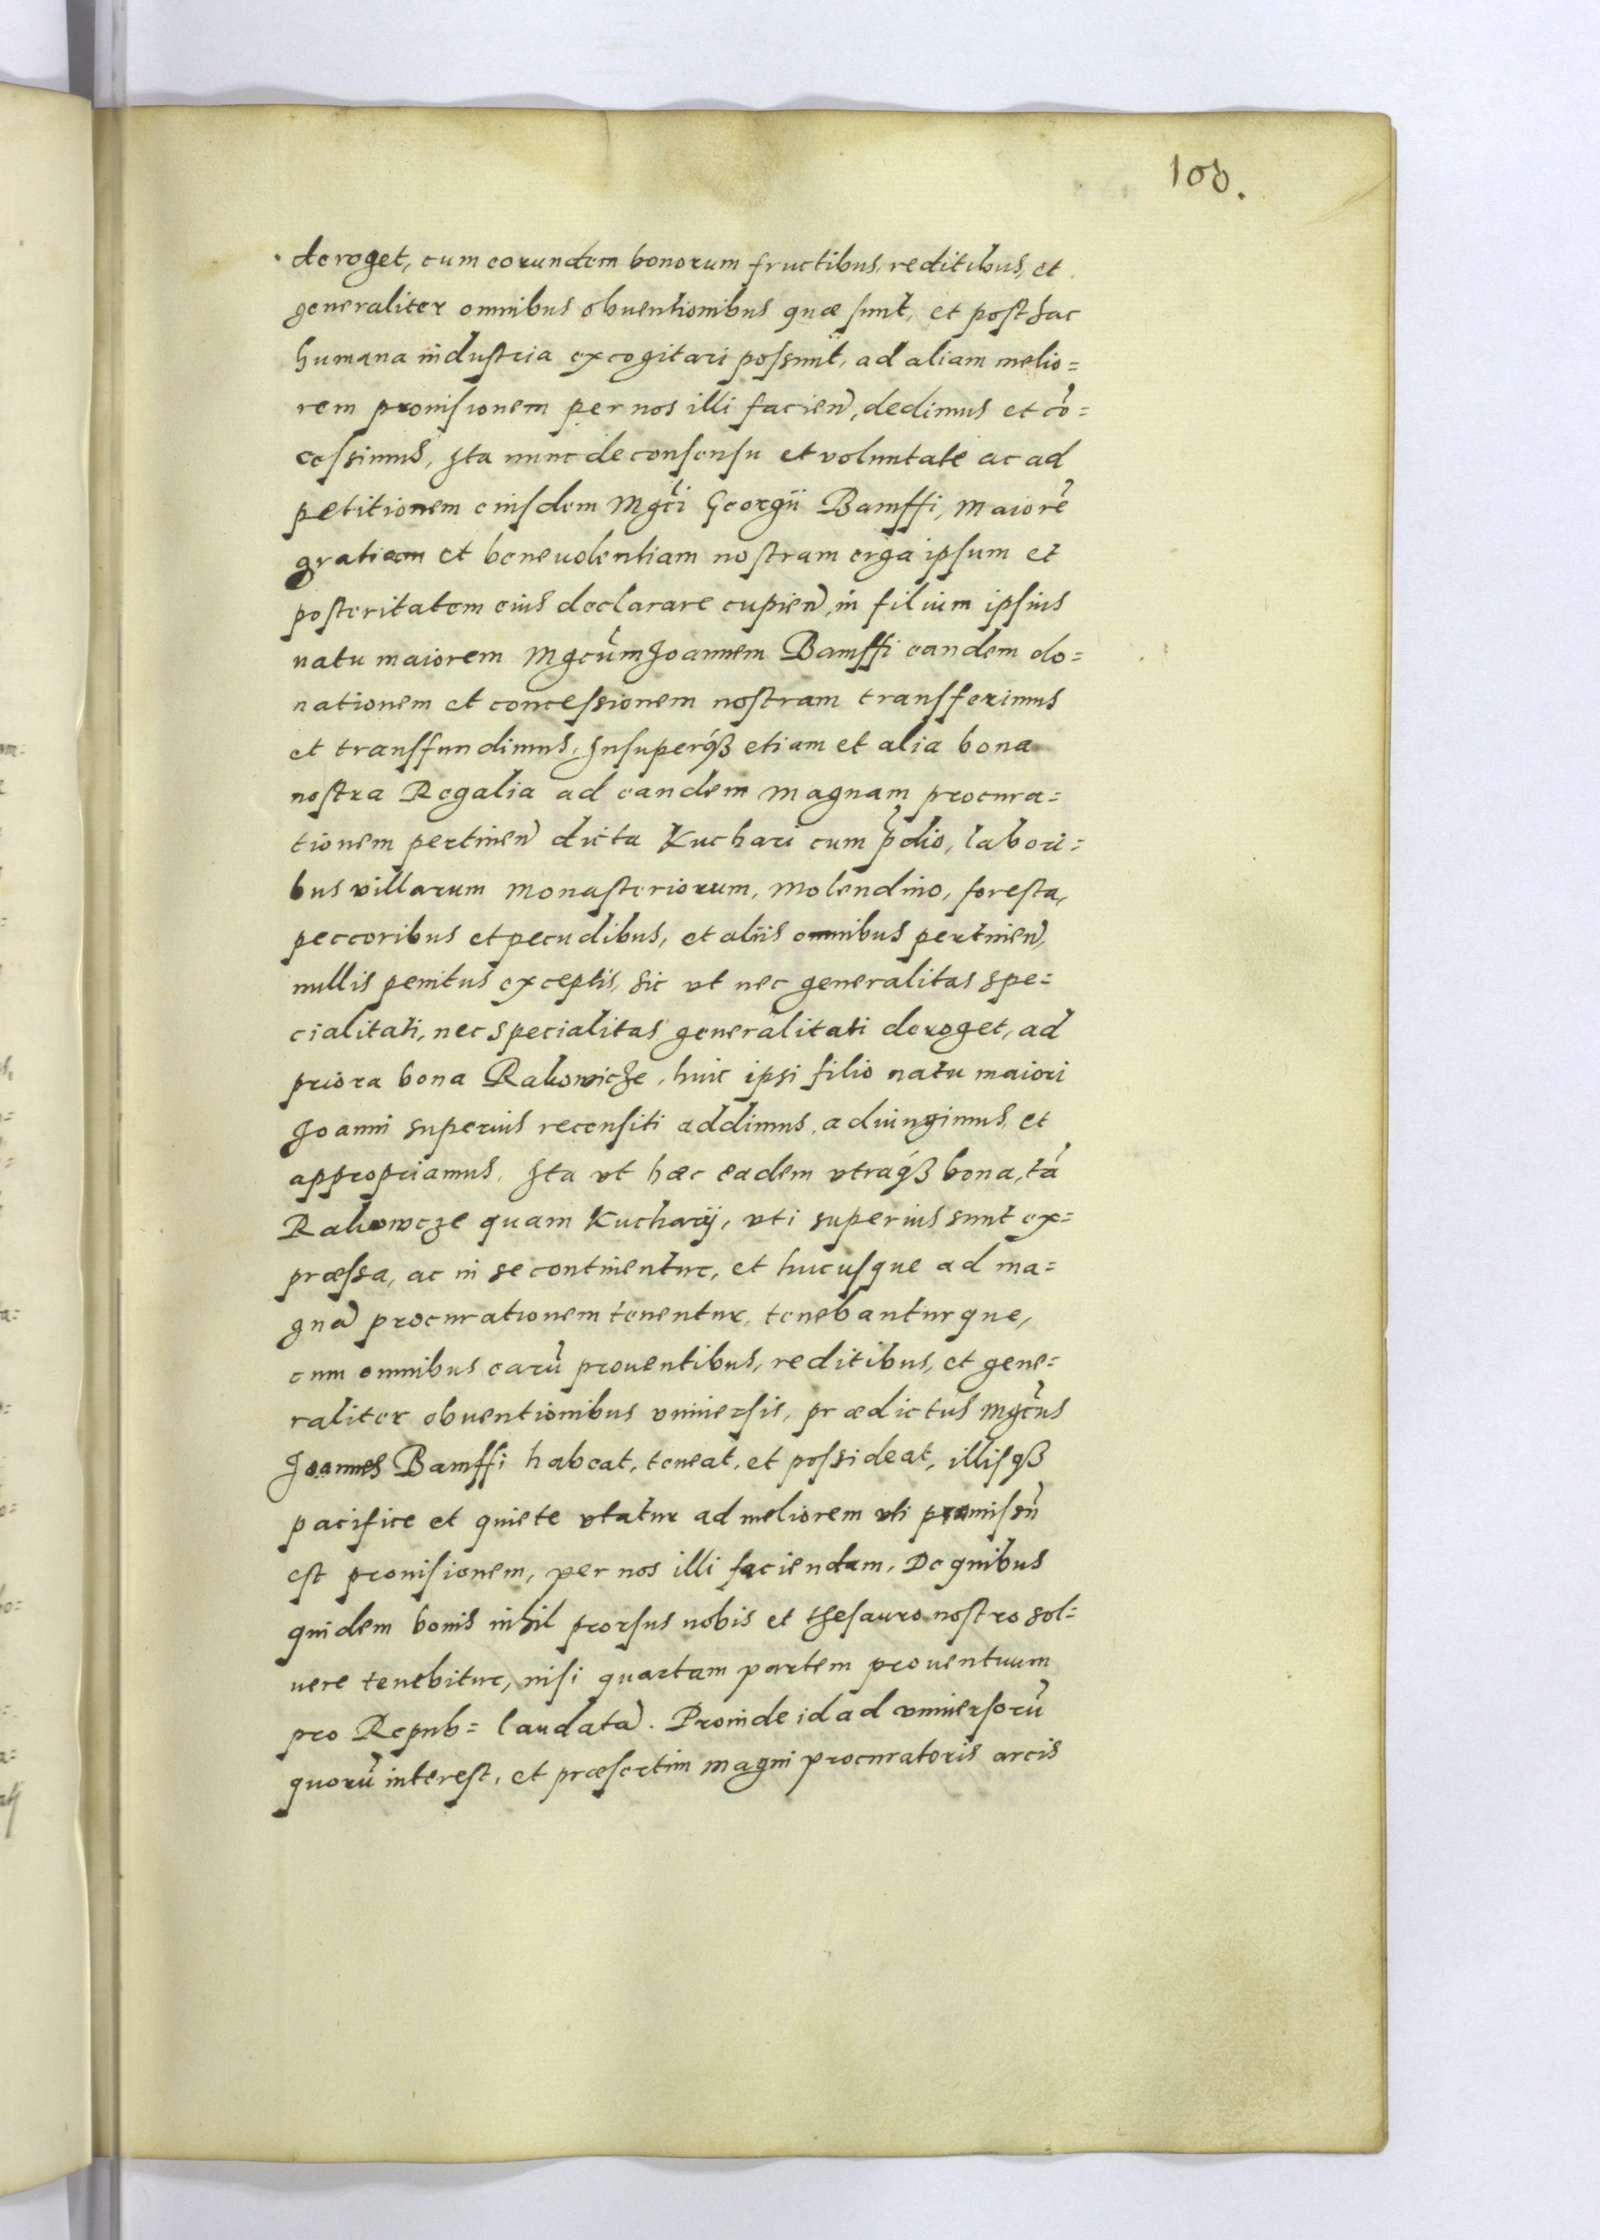 108.
deroget, cum eorundem bonorum fructibus, reditibus, et
generaliter omnibus obuentionibus quæ sunt, et posthac
humana industria excogitari possunt, ad aliam melio=
rem prouisionem per nos illi facien̄, dedimus et cō=
cessimus, Ita nunc de consensu et voluntate ac ad
petitionem eiusdem Mgci Georgii Bamffi, Maiorē
gratiam et beneuolentiam nostram erga ipsum et
posteritatem eius declarare cupien̄, in filium ipsius
natu maiorem Mgcūm Joannem Bamffi eandem do=
nationem et concessionem nostram transferimus
et transfundimus, Insuperqꝫ etiam et alia bona
nostra Regalia ad eandem magnam procura=
tionem pertinen̄ dicta Kuchari cum p̄dio, labori=
bus villarum Monasteriorum, Molendino, foresta,
peccoribus et pecudibus, et aliis omnibus pertinen̄,
nullis penitus exceptis, sic vt nec generalitas spe=
cialitati, nec specialitas generalitati deroget, ad
priora bona Rakowicze, huic ipsi filio natu maiori
Joanni superius recensiti addimus, adiungimus, et
appropriamus, Ita vt hæc eadem vtraqꝫ bona, tā
Rakowcze quam Kucharij, vti superius sunt ex=
præssa, ac in se continentur, et hucusque ad ma=
gnā procurationem tenentur, tenebanturque,
cum omnibus earū prouentibus, reditibus, et gene=
raliter obuentionibus vniuersis, prædictus Mgcūs
Joannes Bamffi habeat, teneat, et possideat, illisqꝫ
pacifice et quiete vtatur ad meliorem vti promisṡū
est prouisionem, per nos illi faciendam. De quibus
quidem bonis inhil prorsus nobis et thesauro nostro sol=
uere tenebitur, nisi quartam partem prouentuum
pro Repub= laudatā. Proinde id ad vniuersorū
quorū interest, et præsertim Magni procuratoris arcis